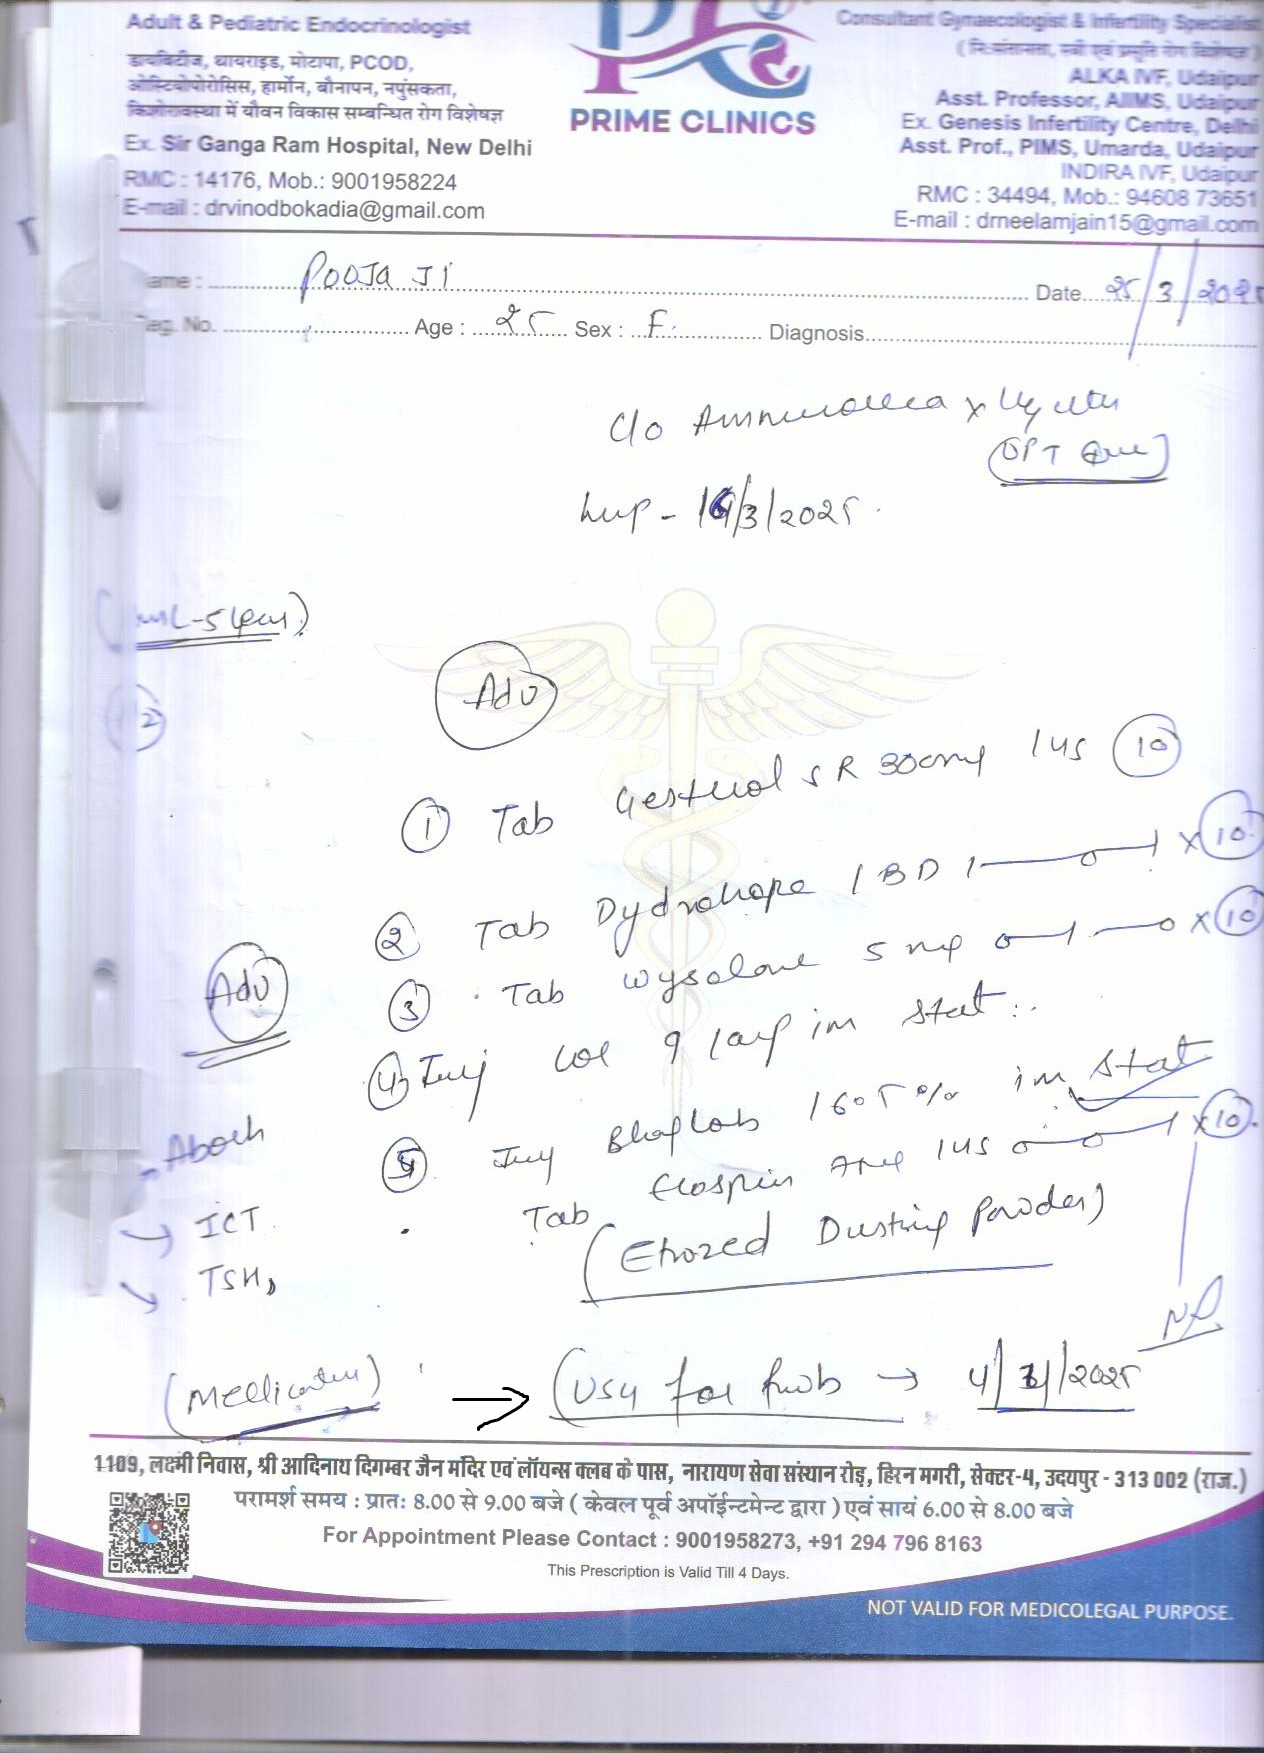 Adult & Pediatric Endocrinologist
डायबिटीज, थायराइड, मोटापा, PCOD,
ओस्टियोपोरोसिस, हार्मोन, बौनापन, नपुंसकता,
किशोरावस्था में यौवन विकास सम्बन्धित रोग विशेषज्ञ
Ex. Sir Ganga Ram Hospital, New Delhi
RMC : 14176, Mob.: 9001958224
E-mail : drvinodbokadia@gmail.com
PRIME CLINICS
Consultant Gynaecologist & Infertility Specialist
(नि:संतानता, स्त्री एवं प्रसूति रोग विशेषज्ञ)
ALKA IVF, Udaipur
Asst. Professor, AIIMS, Udaipur
Ex. Genesis Infertility Centre, Delhi
Asst. Prof., PIMS, Umarda, Udaipur
INDIRA IVF, Udaipur
RMC : 34494, Mob.: 94608 73651
E-mail : drneelamjain15@gmail.com
ame : POOJA JI Date 25/3/2025
Reg. No. Age : 25 Sex : F. Diagnosis
c/o
UPT
Lmp - 3/2025
Adv
1 Tab SR 300mg 1 HS 10
2 Tab Dydrohope 1 BD 1—0—1 x 10
3 Tab Wysolone 5 mg 0—1—0 x 10
4 Inj 1 amp im stat
5 Inj im stat
Tab Ecosprin 1 HS 0—0—1 x 10
(Etrozed Dusting Powder)
Adv
ICT
TSH
USG for → 4/ /2025
1109, लक्ष्मी निवास, श्री आदिनाथ दिगम्बर जैन मंदिर एवं लॉयन्स क्लब के पास, नारायण सेवा संस्थान रोड़, हिरन मगरी, सेक्टर-4, उदयपुर - 313 002 (राज.)
परामर्श समय : प्रातः 8.00 से 9.00 बजे ( केवल पूर्व अपॉईन्टमेन्ट द्वारा ) एवं सायं 6.00 से 8.00 बजे
For Appointment Please Contact : 9001958273, +91 294 796 8163
This Prescription is Valid Till 4 Days.
NOT VALID FOR MEDICOLEGAL PURPOSE.